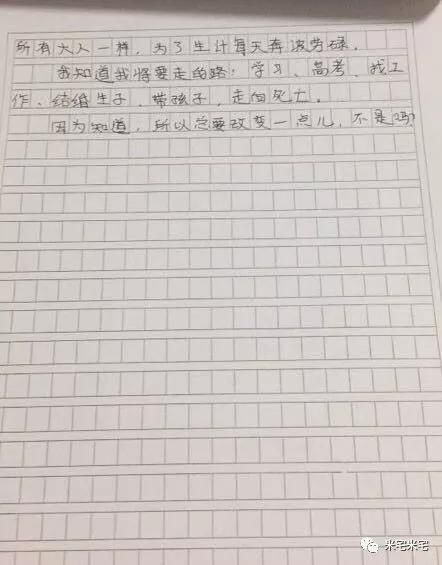 所有大人一样，为了生计每天奔波劳碌．
我知道我将要走的路：学习、高考、找工
作、结婚生子、带孩子、走向死亡．
因为知道，所以总要改变一点儿，不是吗？
米宅米宅